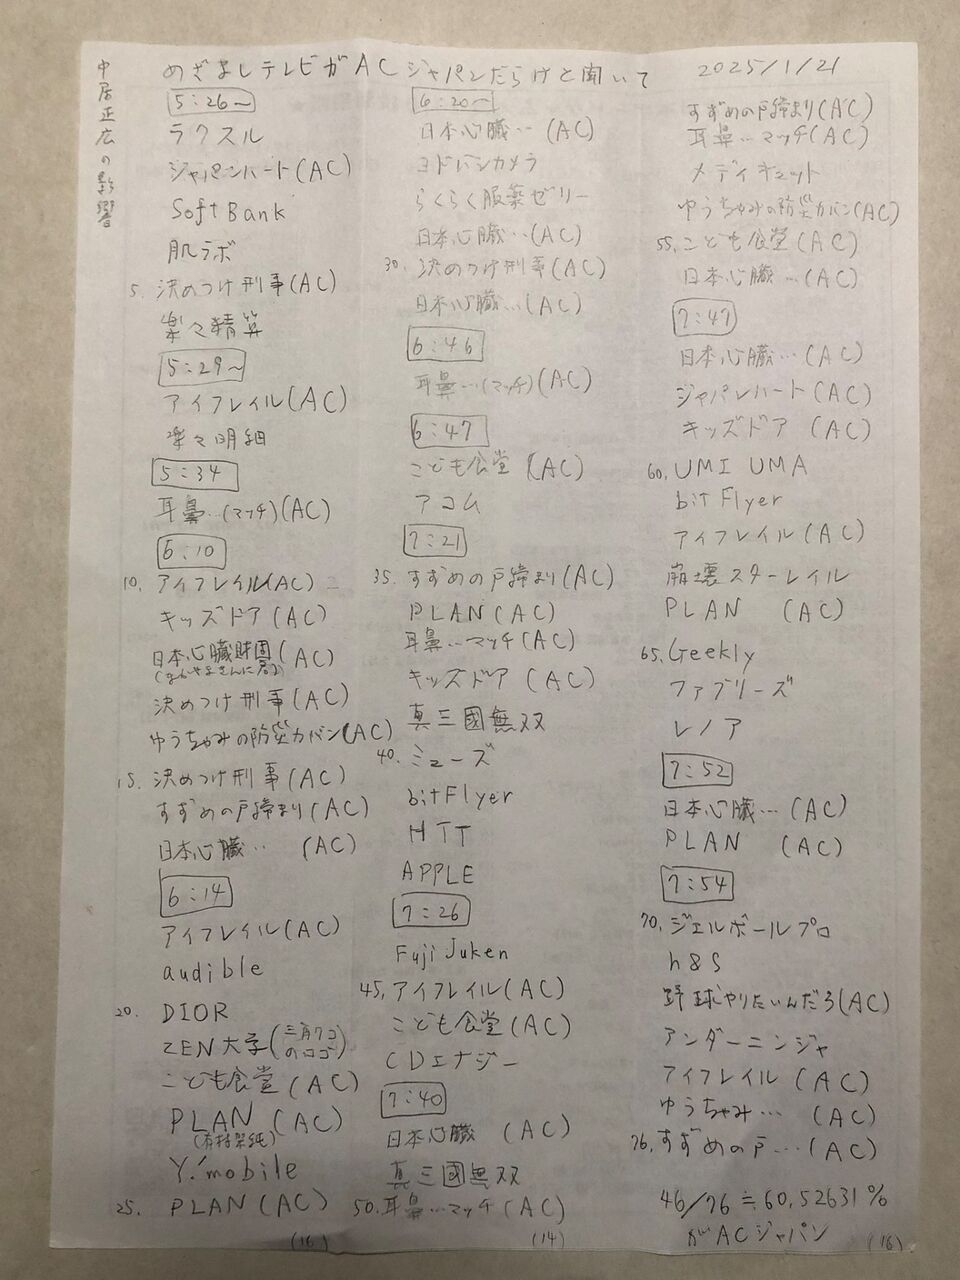 めざましテレビがACジャパンだらけと聞いて
2025/1/21
中居正広の影響
5:26〜
ラクスル
ジャパンハート(AC)
SoftBank
肌ラボ
5. 決めつけ刑事(AC)
楽々精算
5:29〜
アイフレイル(AC)
楽々明細
5:34
耳鼻…(マッチ)(AC)
6:10
10. アイフレイル(AC)
キッズドア(AC)
日本心臓財団(AC)
(なかやまきんに君)
決めつけ刑事(AC)
ゆうちゃみの防災カバン(AC)
15. 決めつけ刑事(AC)
すずめの戸締まり(AC)
日本心臓… (AC)
6:14
アイフレイル(AC)
audible
20. DIOR
ZEN大学(三角タコのロゴ)
こども食堂(AC)
PLAN (AC)
(有村架純)
Y!mobile
25. PLAN(AC)
(16)
6:20〜
日本心臓… (AC)
ヨドバシカメラ
らくらく服薬ゼリー
日本心臓…(AC)
30. 決めつけ刑事(AC)
日本心臓…(AC)
6:46
耳鼻…(マッチ)(AC)
6:47
こども食堂(AC)
アコム
7:21
35. すずめの戸締まり(AC)
PLAN(AC)
耳鼻…マッチ(AC)
キッズドア(AC)
真三國無双
40. ミューズ
bitFlyer
HTT
APPLE
7:26
Fuji Juken
45. アイフレイル(AC)
こども食堂(AC)
CDエナジー
7:40
日本心臓 (AC)
真三國無双
50. 耳鼻…マッチ(AC)
(14)
すずめの戸締まり(AC)
耳鼻…マッチ(AC)
メディキュット
ゆうちゃみの防災カバン(AC)
55. こども食堂(AC)
日本心臓…(AC)
7:47
日本心臓…(AC)
ジャパンハート(AC)
キッズドア(AC)
60. UMI UMA
bitFlyer
アイフレイル(AC)
崩壊スターレイル
PLAN (AC)
65. Geekly
ファブリーズ
レノア
7:52
日本心臓…(AC)
PLAN (AC)
7:54
70. ジェルボールプロ
h&S
野球やりたいんだろ(AC)
アンダーニンジャ
アイフレイル(AC)
ゆうちゃみ… (AC)
76. すずめの戸…(AC)
46/76≒60,52631%
がACジャパン
(16)